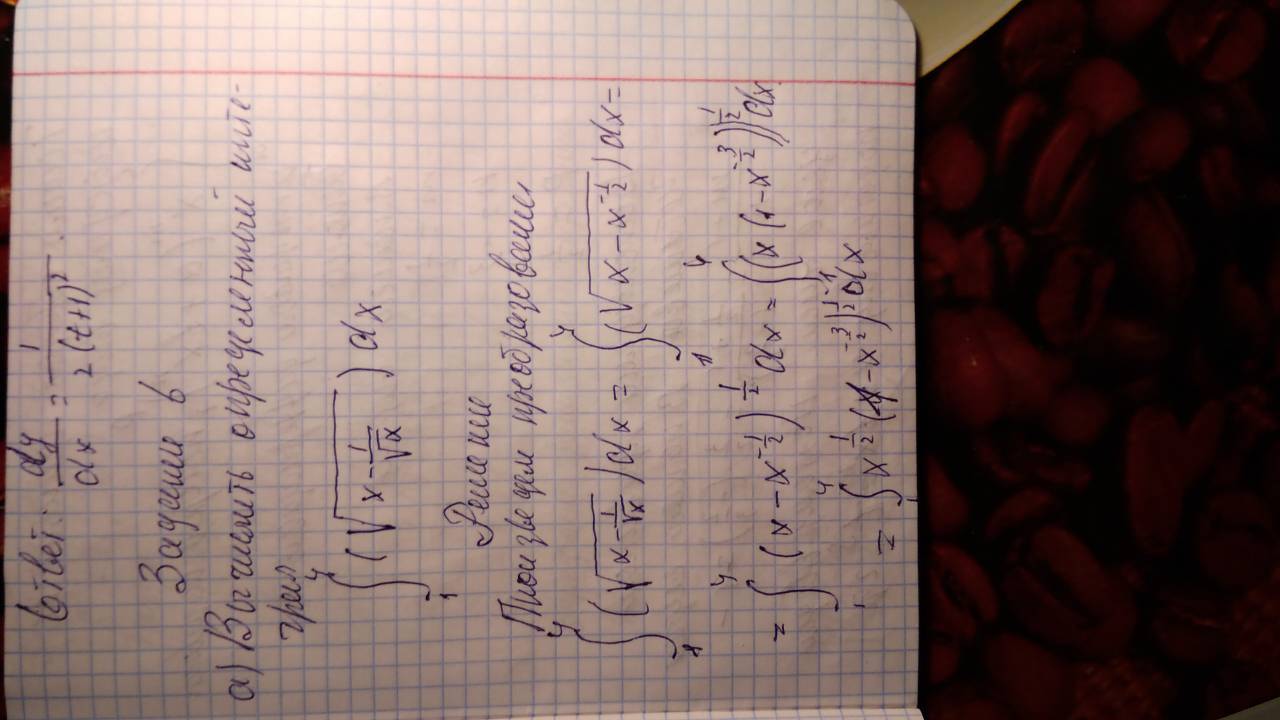 Ответ: dy/dx = 1/(2(t+1)²).
Задание 6
а) Вычислить определенный инте-
грал
∫₁⁴ (√(x - 1/√x)) dx
Решение
Произведем преобразование
∫₁⁴ (√(x - 1/√x)) dx = ∫₁⁴ (√(x - x^(-1/2))) dx =
= ∫₁⁴ (x - x^(-1/2))^(1/2) dx = ∫₁⁴ (x(1 - x^(-3/2)))^(1/2) dx
= ∫₁⁴ x^(1/2) (1 - x^(-3/2))^(1/2) dx